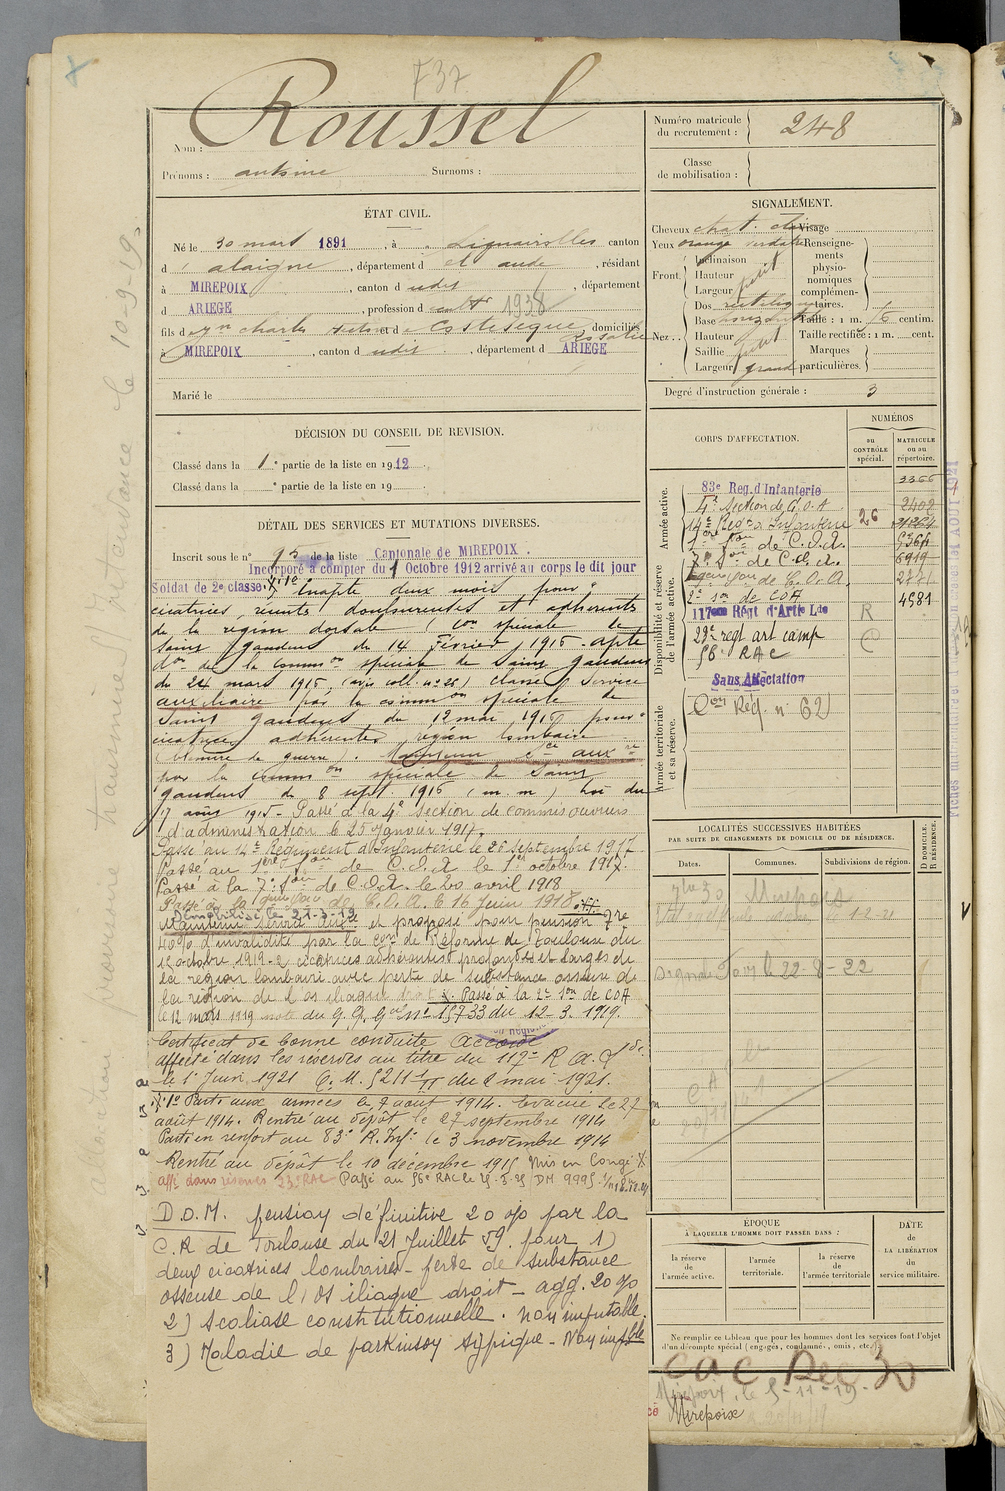 F37
Nom : Roussel
Prénoms : antoine Surnoms :
ÉTAT CIVIL.
Né le 30 mars 1891, à Lignairolles canton
d' alaigne, département d el aude, résidant
à MIREPOIX, canton d udit, département
d ARIEGE, profession d 1938
fils d charles et de Castesèque Rosalie domiciliés
à MIREPOIX, canton d udit, département d ARIEGE
Marié le
DÉCISION DU CONSEIL DE REVISION.
Classé dans la 1e partie de la liste en 1912.
Classé dans la e partie de la liste en 19
DÉTAIL DES SERVICES ET MUTATIONS DIVERSES.
Inscrit sous le n° 95 de la liste Cantonale de MIREPOIX.
Incorporé à compter du 1 Octobre 1912 arrivé au corps le dit jour
Soldat de 2e classe. Inapte deux mois pour
cicatrices récentes douloureuses et adhérentes
de la région dorsale (Con spéciale de
Saint Gaudens du 14 Février 1915 - apte
don de la Common spéciale de Saint Gaudens
du 24 mars 1915, (avis coll. n° 28) classé service
auxiliaire par la common spéciale de
Saint Gaudens du 12 mai 1915 pour
cicatrices adhérentes région lombaire
(blessure de guerre). Maintenu sce auxre
par la Common spéciale de Saint
Gaudens du 8 sept. 1915 (m. m) du
17 août 1915 - Passé à la 4e section de Commis ouvriers
d'administration le 25 Janvier 1917.
Passé au 14e Régiment d'Infanterie le 26 septembre 1917
Passé au 1ère Son de C.O.A le 1er octobre 1917.
Passé à la 7e Son de C.O.A. le 20 avril 1918
Passé à la Son de C.O.A. le 16 Juin 1918
Démobilisé le 21-3-19
Maintenu service armé et proposé pour pension
40% d'invalidité par la Con de Réforme de Toulouse du
15 octobre 1919 - 2 cicatrices adhérentes profondes et larges de
la région lombaire avec perte de substance osseuse de
la région de l'os iliaque droit. Passé à la 2e Son de COA
le 12 mars 1919 note du G.Q. Gal n° 15733 du 12-3.1919.
Certificat de bonne conduite Accordé
affecté dans les réserves au titre du 117e R A L
le 1er Juin 1921 C.M. 5211 1/11 du 2 mai 1921.
Parti aux armées le 7 août 1914. Evacué le 27
août 1914. Rentré au dépôt le 27 septembre 1914
Parti en renfort au 83e R. Inf. le 3 novembre 1914
Rentré au dépôt le 10 décembre 1915 Mis en Congé
affé dans réserves 23e RAC Passé au 56e RAC le
D.O.M. pension définitive 20 % par la
C.R de Toulouse du 21 Juillet 59. pour 1)
deux cicatrices lombaires - perte de substance
osseuse de l'Os iliaque droit - agg. 20 %
2) Scoliose constitutionnelle. Non imputable.
3) Maladie de parkinson atypique - Non imp
Numéro matricule
du recrutement : 248
Classe
de mobilisation :
SIGNALEMENT.
Cheveux chat. clair Visage
Yeux orangé verdâtre Renseigne-
ments
physio-
nomiques
complémen-
taires.
Front
Inclinaison
Hauteur petit
Largeur
Nez
Dos rectiligne
Base horizontale
Hauteur
Saillie petit
Largeur grand
Taille : 1 m. 6 centim.
Taille rectifiée : 1 m. cent.
Marques
particulières.
Degré d'instruction générale : 3
CORPS D'AFFECTATION.
NUMÉROS
au
CONTRÔLE
spécial.
MATRICULE
ou au
répertoire.
Armée active.
83e Reg. d'Infanterie
4e Section de C.O.A 2402
14e Regt d'Infanterie 26
1ère Son de C.O.A.
7e Son de C.O.A. 6919
Son de C.O.A. 2771
2e Son de COA 4581
Disponibilité et réserve
de l'armée active.
117eme Régt d'Artie Lde R
23e regt art camp C
56 RAC
Sans Affectation
Con Réf. n° 62
Armée territoriale
et sa réserve.
LOCALITÉS SUCCESSIVES HABITÉES
PAR SUITE DE CHANGEMENTS DE DOMICILE OU DE RÉSIDENCE.
Dates. Communes. Subdivisions de région.
D DOMICILE.
R RÉSIDENCE.
Mirepoix
le 22-8-22
ÉPOQUE
À LAQUELLE L'HOMME DOIT PASSER DANS :
la réserve
de
l'armée active.
l'armée
territoriale.
la réserve
de
l'armée territoriale
DATE
de
LA LIBÉRATION
du
service militaire.
Ne remplir ce tableau que pour les hommes dont les services font l'objet
d'un décompte spécial (engagés, condamnés, omis, etc.)
Mirepoix, le 5-11-19.
Mirepoix
le 10-9-19.